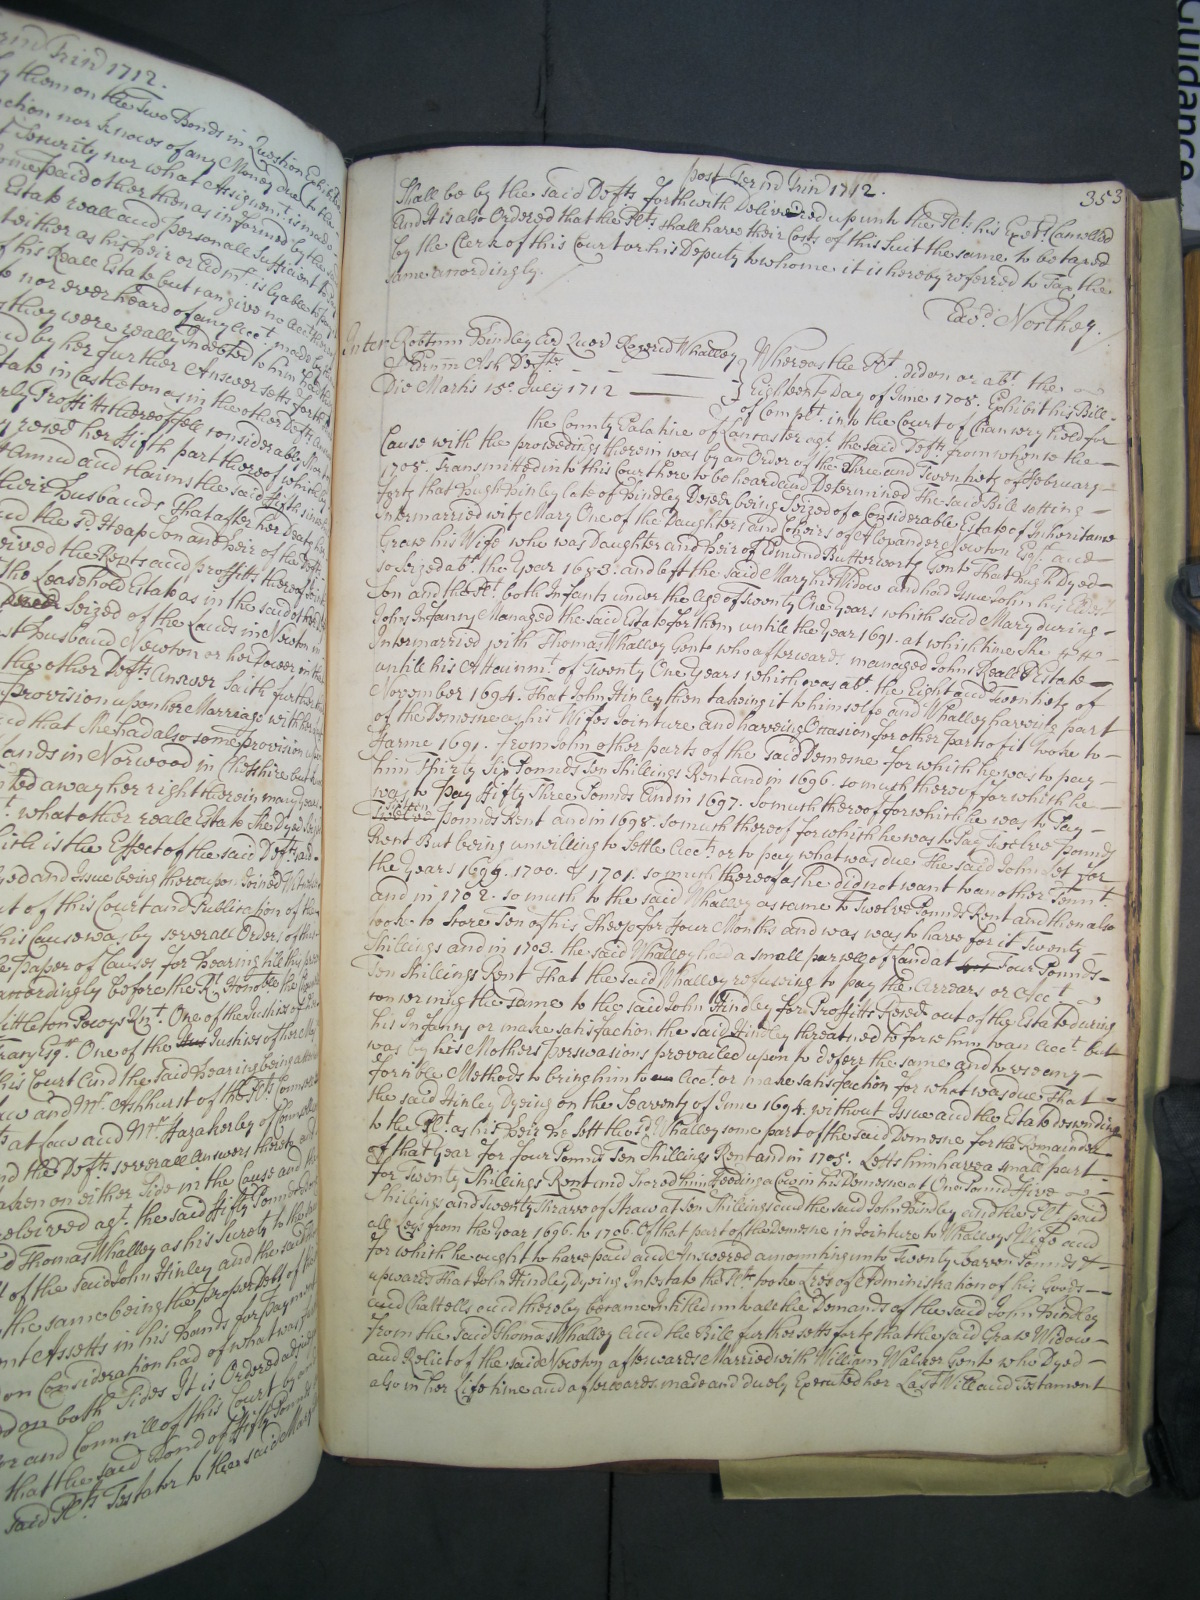 rmd Trin 1712.
them on the Two Bonds in Question Exhibited
ction nor knows of any Money due to the
Security nor what Assignmt. is made
paid other then as informed by the
Estate reall and personall Sufficient
either as his heir or Admr. is lyable to
his Reall Estate but can give no Acct.
nor ever heard of any Acct. made
they were really Indebted to him
d by her further Answer setts forth
tate in Castleton as in the other Defts.
rly Proffitts thereof fell considerably short
reced her Fifth part thereof which by
Annu and claims the said Fifth since
their husbands That after her Death
d the sd. Heap Son and heir of the
eived the Rents and proffitts thereof
the Leasehold Estate as in the said other
Seized of the Lands in Newton in
st husband Newton or her Dower in the
the other Defts. Answer Saith further
Provision upon her Marriage with the
and that She had also some provision
Lands in Norwood in Cheshire but
ted away her right therein many years
what other reall Estate She Dyed Seized
ch is the Effect of the said Defts. Ans.
ed and Issue being thereupon Joined Witnesses
out of this Court and Publication of the
his Cause was by severall Orders of this
Paper of Causes for hearing till this present
accordingly before the Rt. Honoble. the
Littleton Powys Knt. One of the Justices of
Tracy Esqr. One of the Justices of the
his Court And the said hearing being attended
aw and Mr. Ashhurst of the Plts. Councell
at Law and Mr. Hazaherley of Councell
nd the Defts. severall Answers thereto and
aken on either Side in the Cause and the
elivered agt. the said Fifty Pounds
Thomas Whalley as his Surety to the
of the said John Hinley and the said
the same being the proper Debt of the
nt Assetts in his hands for paymt.
on Consideration had of what was
d on both Sides It is Ordered adjudged
r and Councill of this Court by
that the said Bond of Fifty Pounds
said Plts. Testator to the said Mary
post Term Trin 1712.
353
Shall be by the said Defts forthwith Delivered up unto the Plt. his Exrs. Cancelled
And it is also Ordered that the Plts. shall have their Costs of this Suit the same to be taxed
by the Clerk of this Court or his Deputy to whome it is hereby referred to Tax the
same accordingly.
Edwd. Northey.
Inter Robtum Hindley Ar Quer Edrum Whalley
Edrum Ash Defts
Die Martis 15o July 1712
Whereas the Plt. did on or abt. the
Eighteenth Day of June 1705. Exhibit his Bill
of Complt. into the Court of Chancery held for
the County Palatine of Lancaster agt. the said Defts. from whence the
Cause with the proceedings therein was by an Order of the Three and Twentieth of February
1708. Transmitted into this Court here to be heard and Determined The said Bill setting
forth that Hugh Hinley late of Hindley Deced being Seized of a Considerable Estate of Inheritance
Intermarried with Mary One of the Daughters and Coheirs of Alexander Newton Esqr. and
Grace his Wife who was Daughter and heir of Edmund Butterworth Gent. That Hugh Dyed
so Seized abt. the Year 1683. and left the said Mary his Widow and had Issue John his Eldest
Son and the Plt. both Infants under the Age of twenty One years which said Mary during
Johns Infancy Managed the said Estate for them untill the Year 1691. at which time She
Intermarried with Thomas Whalley Gent. who afterwards managed Johns Reall Estate
untill his Attainmt. of Twenty One Years which was abt. the Eight and Twentieth of
November 1694. That John Hinley then takeing it to himselfe and Whalley haveing part
of the Demesne as his Wifes Jointure and haveing Occasion for other parts of it tooke to
Farme 1691. from John other parts of the said Demesne for which he was to pay
him Thirty Six Pounds Ten Shillings Rent and in 1696. so much thereof for which he
was to Pay Fifty Three Pounds And in 1697. so much thereof for which he was to Pay
Pounds Rent and in 1698. so much thereof for which he was to Pay Twelve Pounds
Rent But being unwilling to Settle Accts. or to pay what was due the said John Set for
the Years 1699. 1700. & 1701. so much thereof as he did not want to another Tennt.
and in 1702. so much to the said Whalley as came to Twelve Pounds Rent and then also
took to Store Ten of his Sheep for Four Months and was was to have for it Twenty
Shillings and in 1703. the said Whalley held a small parcell of Land at Four Pounds
Ten Shillings Rent That the said Whalley refuseing to pay the Arrears or Acct
concerning the same to the said John Hindley for Proffitts Reced out of the Estate during
his Infancy or make satisfaction the said Hindley threatned to force him to an Acct. but
was by his Mothers perswasions prevailed upon to deferr the same and to use any
forcible Methods to bring him to Acct. or make satisfaction for what was due That
the said Hinley Dyeing on the Seaventh of June 1694. without Issue and the Estate descending
to the Plt. as his Heir he lett the sd. Whalley some part of the said Demesne for the Remainder
of that Year for four Pounds Ten Shillings Rent and in 1705. Letts him have a small part
for Twenty Shillings Rent and Stored him Feeding a Cow in his Demesne at One Pound Five
Shillings and twenty Thraves of Straw at Ten Shillings and the said John Hindley and the Plt. paid
all Leys from the Year 1696. to 1706. Of that part of the Demesne in Jointure to Whalleys Wife and
for which he ought to have paid and Answered amounting unto Twenty Seaven Pounds &
upwards That John Hindley Dyeing Intestate the Plt. tooke Lres of Administration of his Goods
and Chattells and thereby became Intitled unto all the Demands of the said John Hindley
from the said Thomas Whalley And the Bill further setts forth that the said Grace Widow
and Relict of the said Newton afterwards Married with William Walker Gent. who Dyed
also in her Life time and afterwards made and duely Executed her Last Will and Testament
Guidance